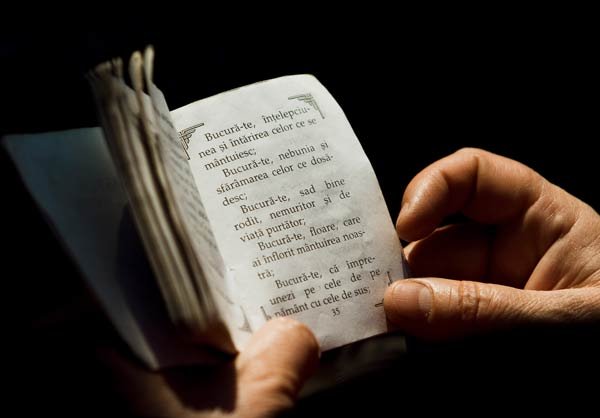 Bucură-te, înțelepciu-
nea și întărirea celor ce se
mântuiesc;
Bucură-te, nebunia și
sfărâmarea celor ce dosă-
desc;
Bucură-te, sad bine
rodit, nemuritor și de
viață purtător;
Bucură-te, floare, care
ai înflorit mântuirea noas-
tră;
Bucură-te, că împre-
unezi pe cele de pe
pământ cu cele de sus;
35